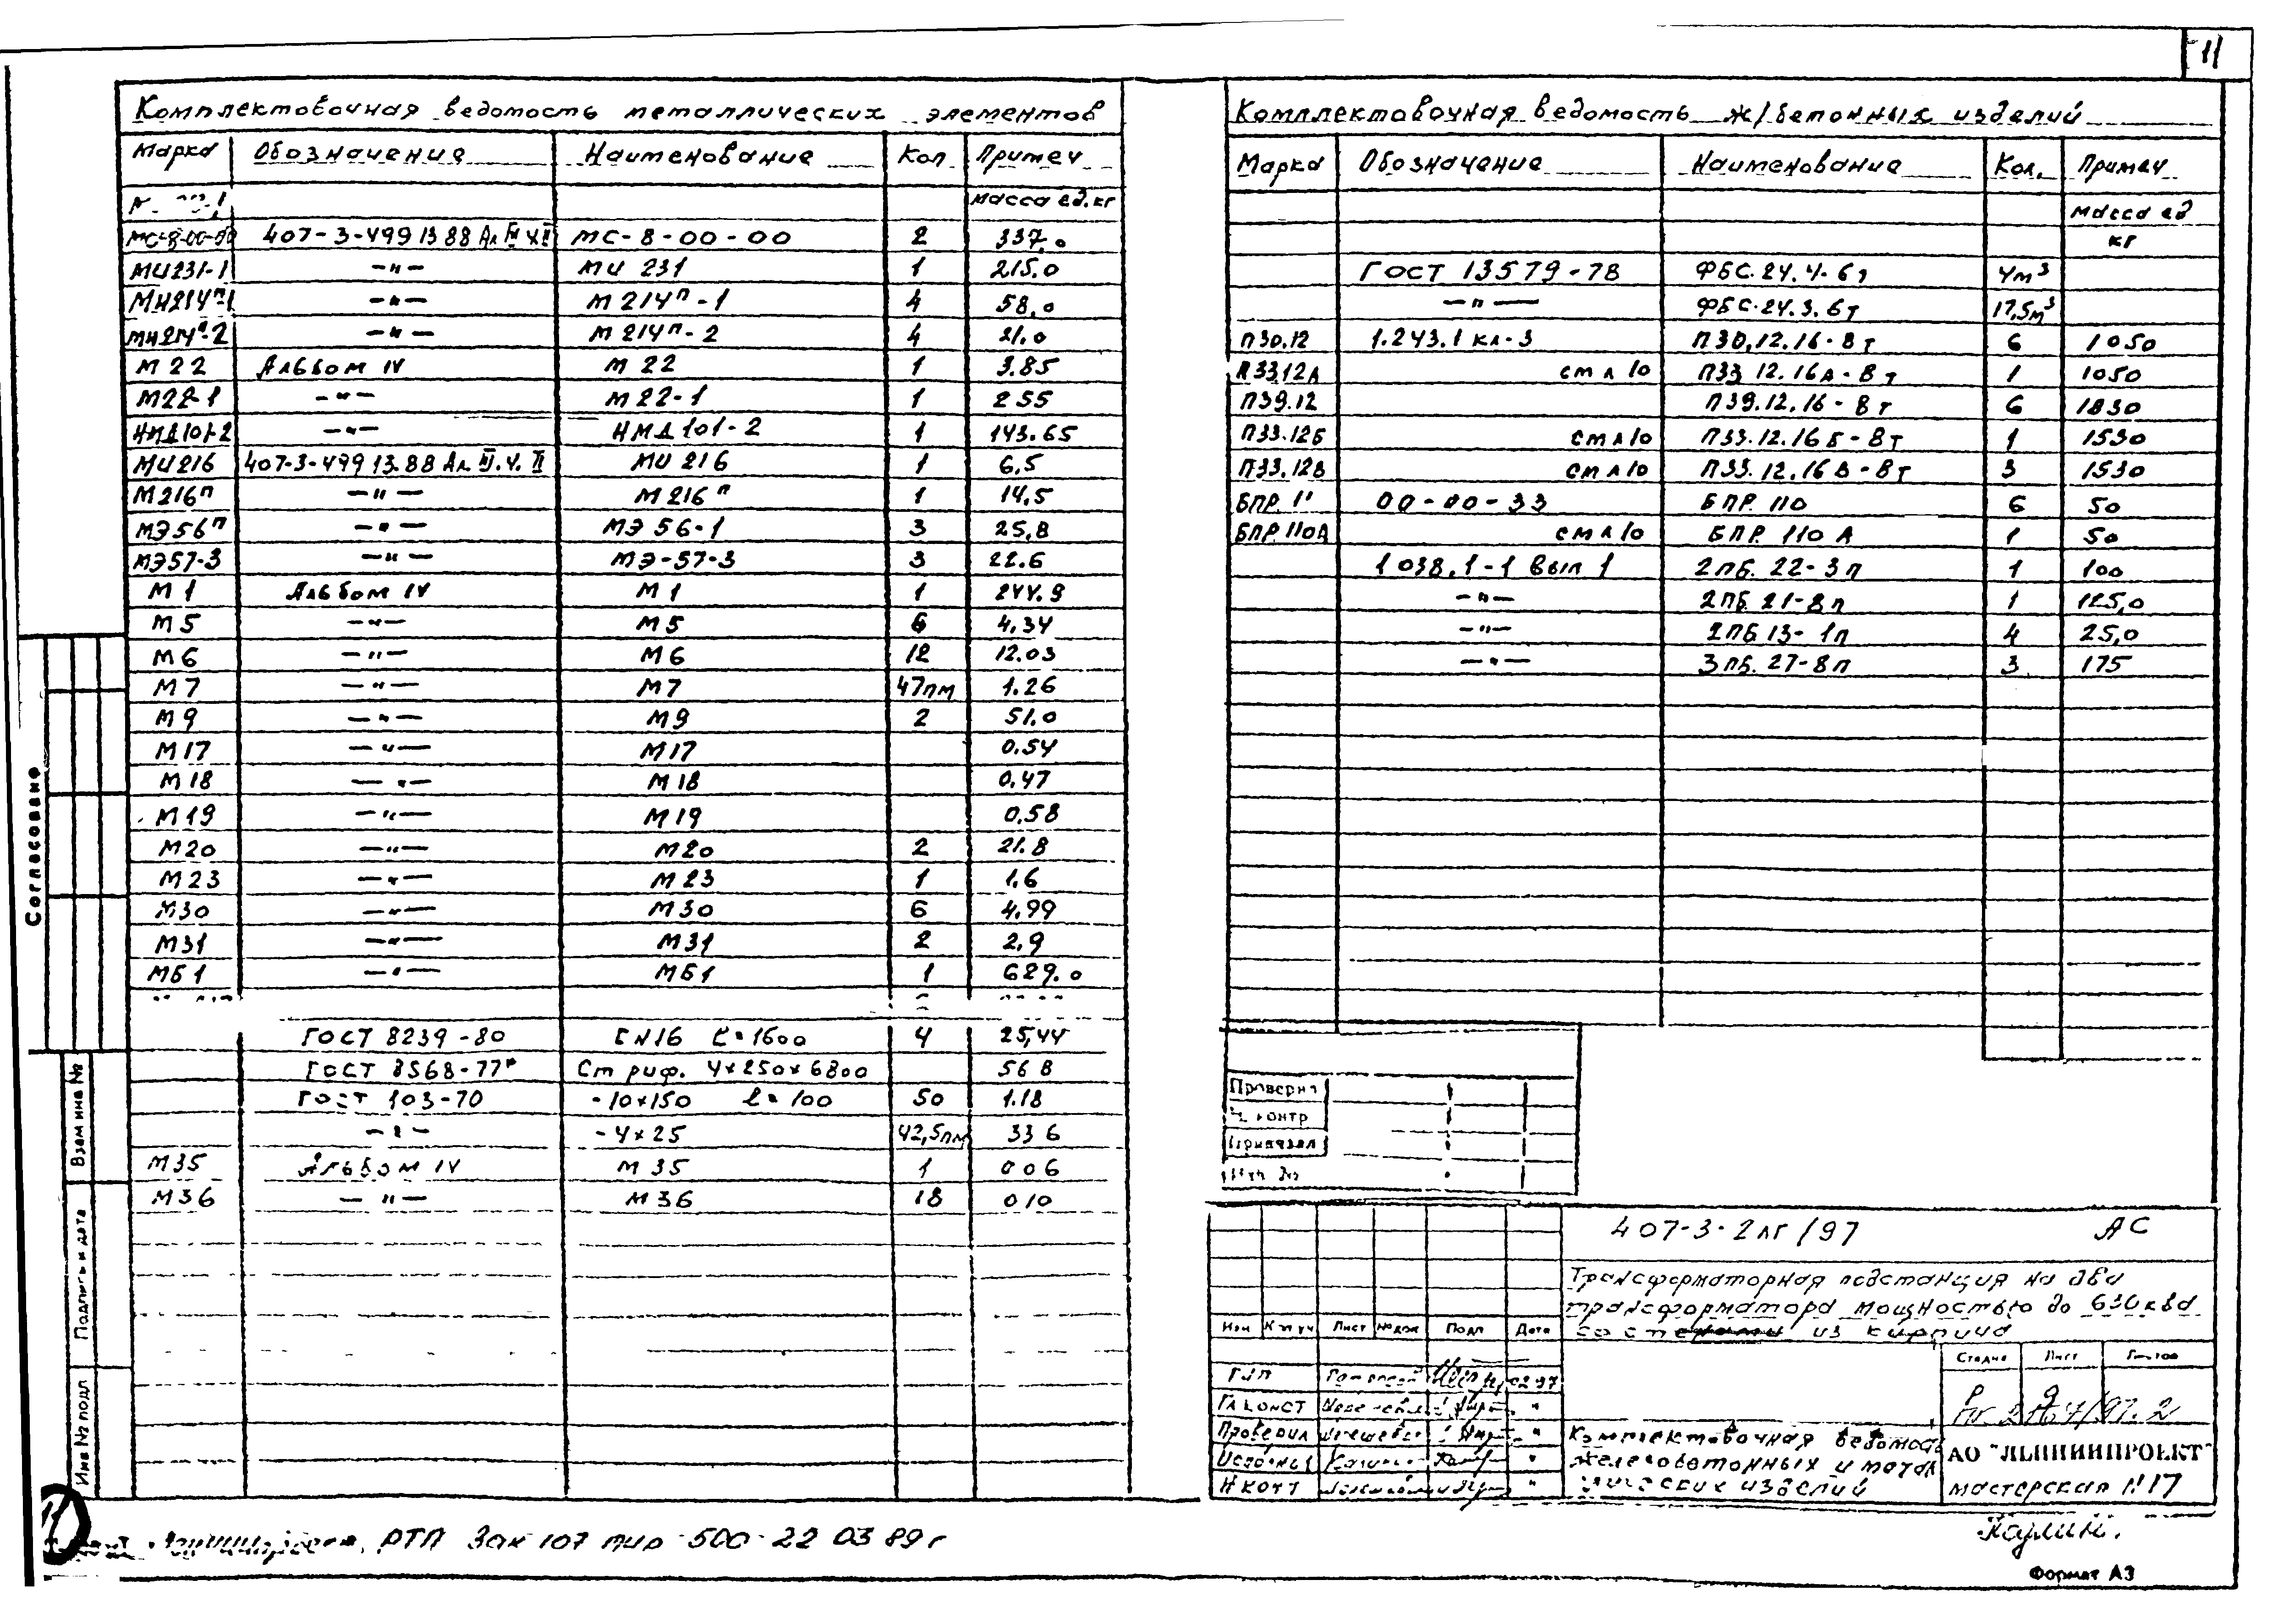 11
Комплектовочная ведомость металлических элементов
Марка Обозначение Наименование Кол Примеч
масса ед. кг
МС-8-00-00 407-3-499 13 88 Ал МС-8-00-00 2 337,0
МИ231-1 -"- МИ 231 1 215.0
МИ214п-1 -"- М 214п-1 4 58,0
МИ214п-2 -"- М 214п-2 4 21.0
М 22 Альбом IV М 22 1 3.85
М22-1 -"- М 22-1 1 2 55
НМД101-2 -"- НМД 101-2 1 143.65
МИ216 407-3-499 13.88 Ал. МИ 216 1 6,5
М216п -"- М 216п 1 14,5
МЭ56п -"- МЭ 56-1 3 25,8
МЭ57-3 -"- МЭ-57-3 3 22.6
М 1 Альбом IV М 1 1 244.9
М 5 -"- М 5 6 4,34
М 6 -"- М 6 12 12.03
М 7 -"- М 7 47пм 1.26
М 9 -"- М 9 2 51.0
М 17 -"- М 17 0.54
М 18 -"- М 18 0,47
М 19 -"- М 19 0,58
М20 -"- М20 2 21.8
М 23 -"- М 23 1 1,6
М30 -"- М30 6 4,99
М31 -"- М31 2 2,9
МБ1 -"- МБ1 1 629.0
ГОСТ 8239-80 [ N16 ℓ=1600 4 25,44
ГОСТ 8568-77* Ст риф. 4×250×6800 56 8
ГОСТ 103-70 -10×150 ℓ=100 50 1.18
-"- -4×25 42,5пм 33 6
М35 Альбом IV М 35 1 0 0 6
М36 -"- М 36 18 0 10
Комплектовочная ведомость ж/бетонных изделий
Марка Обозначение Наименование Кол. Примеч
масса ед
кг
ГОСТ 13579-78 ФБС.24.4.6т 4м³
-"- ФБС.24.3.6т 17,5м³
П30.12 1.243.1 кл-3 П30.12.16-8т 6 1050
П33.12А см л 10 П33 12.16А-8т 1 1050
П39.12 П39.12.16-8т 6 1830
П33.12Б см л 10 П33.12.16Б-8т 1 1530
П33.12В см л 10 П33.12.16В-8т 3 1530
БПР. 00-00-33 БПР. 110 6 50
БПР 110А см л 10 БПР. 110 А 1 50
1 038.1-1 вып 1 2ПБ. 22-3п 1 100
-"- 2ПБ 21-8п 1 125,0
-"- 2ПБ 13-1п 4 25,0
-"- 3ПБ. 27-8п 3 175
Проверил
контр
Привязал
Согласовано
Взам инв №
Подпись и дата
Инв № подл
407-3-2лг/97 АС
Трансформаторная подстанция на два
трансформатора мощностью до 630 кВа
со стенами из кирпича
Изм Кол уч Лист № док Подп Дата
Стадия Лист Листов
ГИП 02 97
Гл конст "
Проверил "
Исполнил "
Н конт "
Комплектовочная ведомость
железобетонных и метал
лических изделий
АО "ЛЕННИИПРОЕКТ"
мастерская N17
РТП Зак 107 тир 500 22 03 89 г
Формат А3